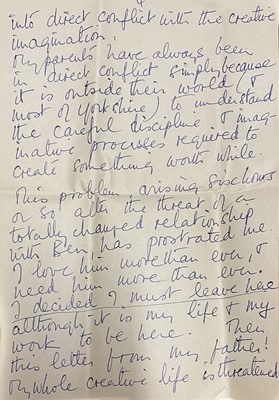 4
into direct conflict with the creative
imagination.
My parents have always been
in direct conflict simply because
it is outside their world (&
most of Yorkshire) to understand
the careful discipline & imag-
inative processes required to
create something worth while.
This problem arising six hours
or so after the threat of a
totally changed relationship
with Ben, has prostrated me.
I love him more than ever, &
need him more than ever.
I decided I must leave here
although it is my life & my
work to be here. Then
this letter from my father!
My whole creative life is threatened